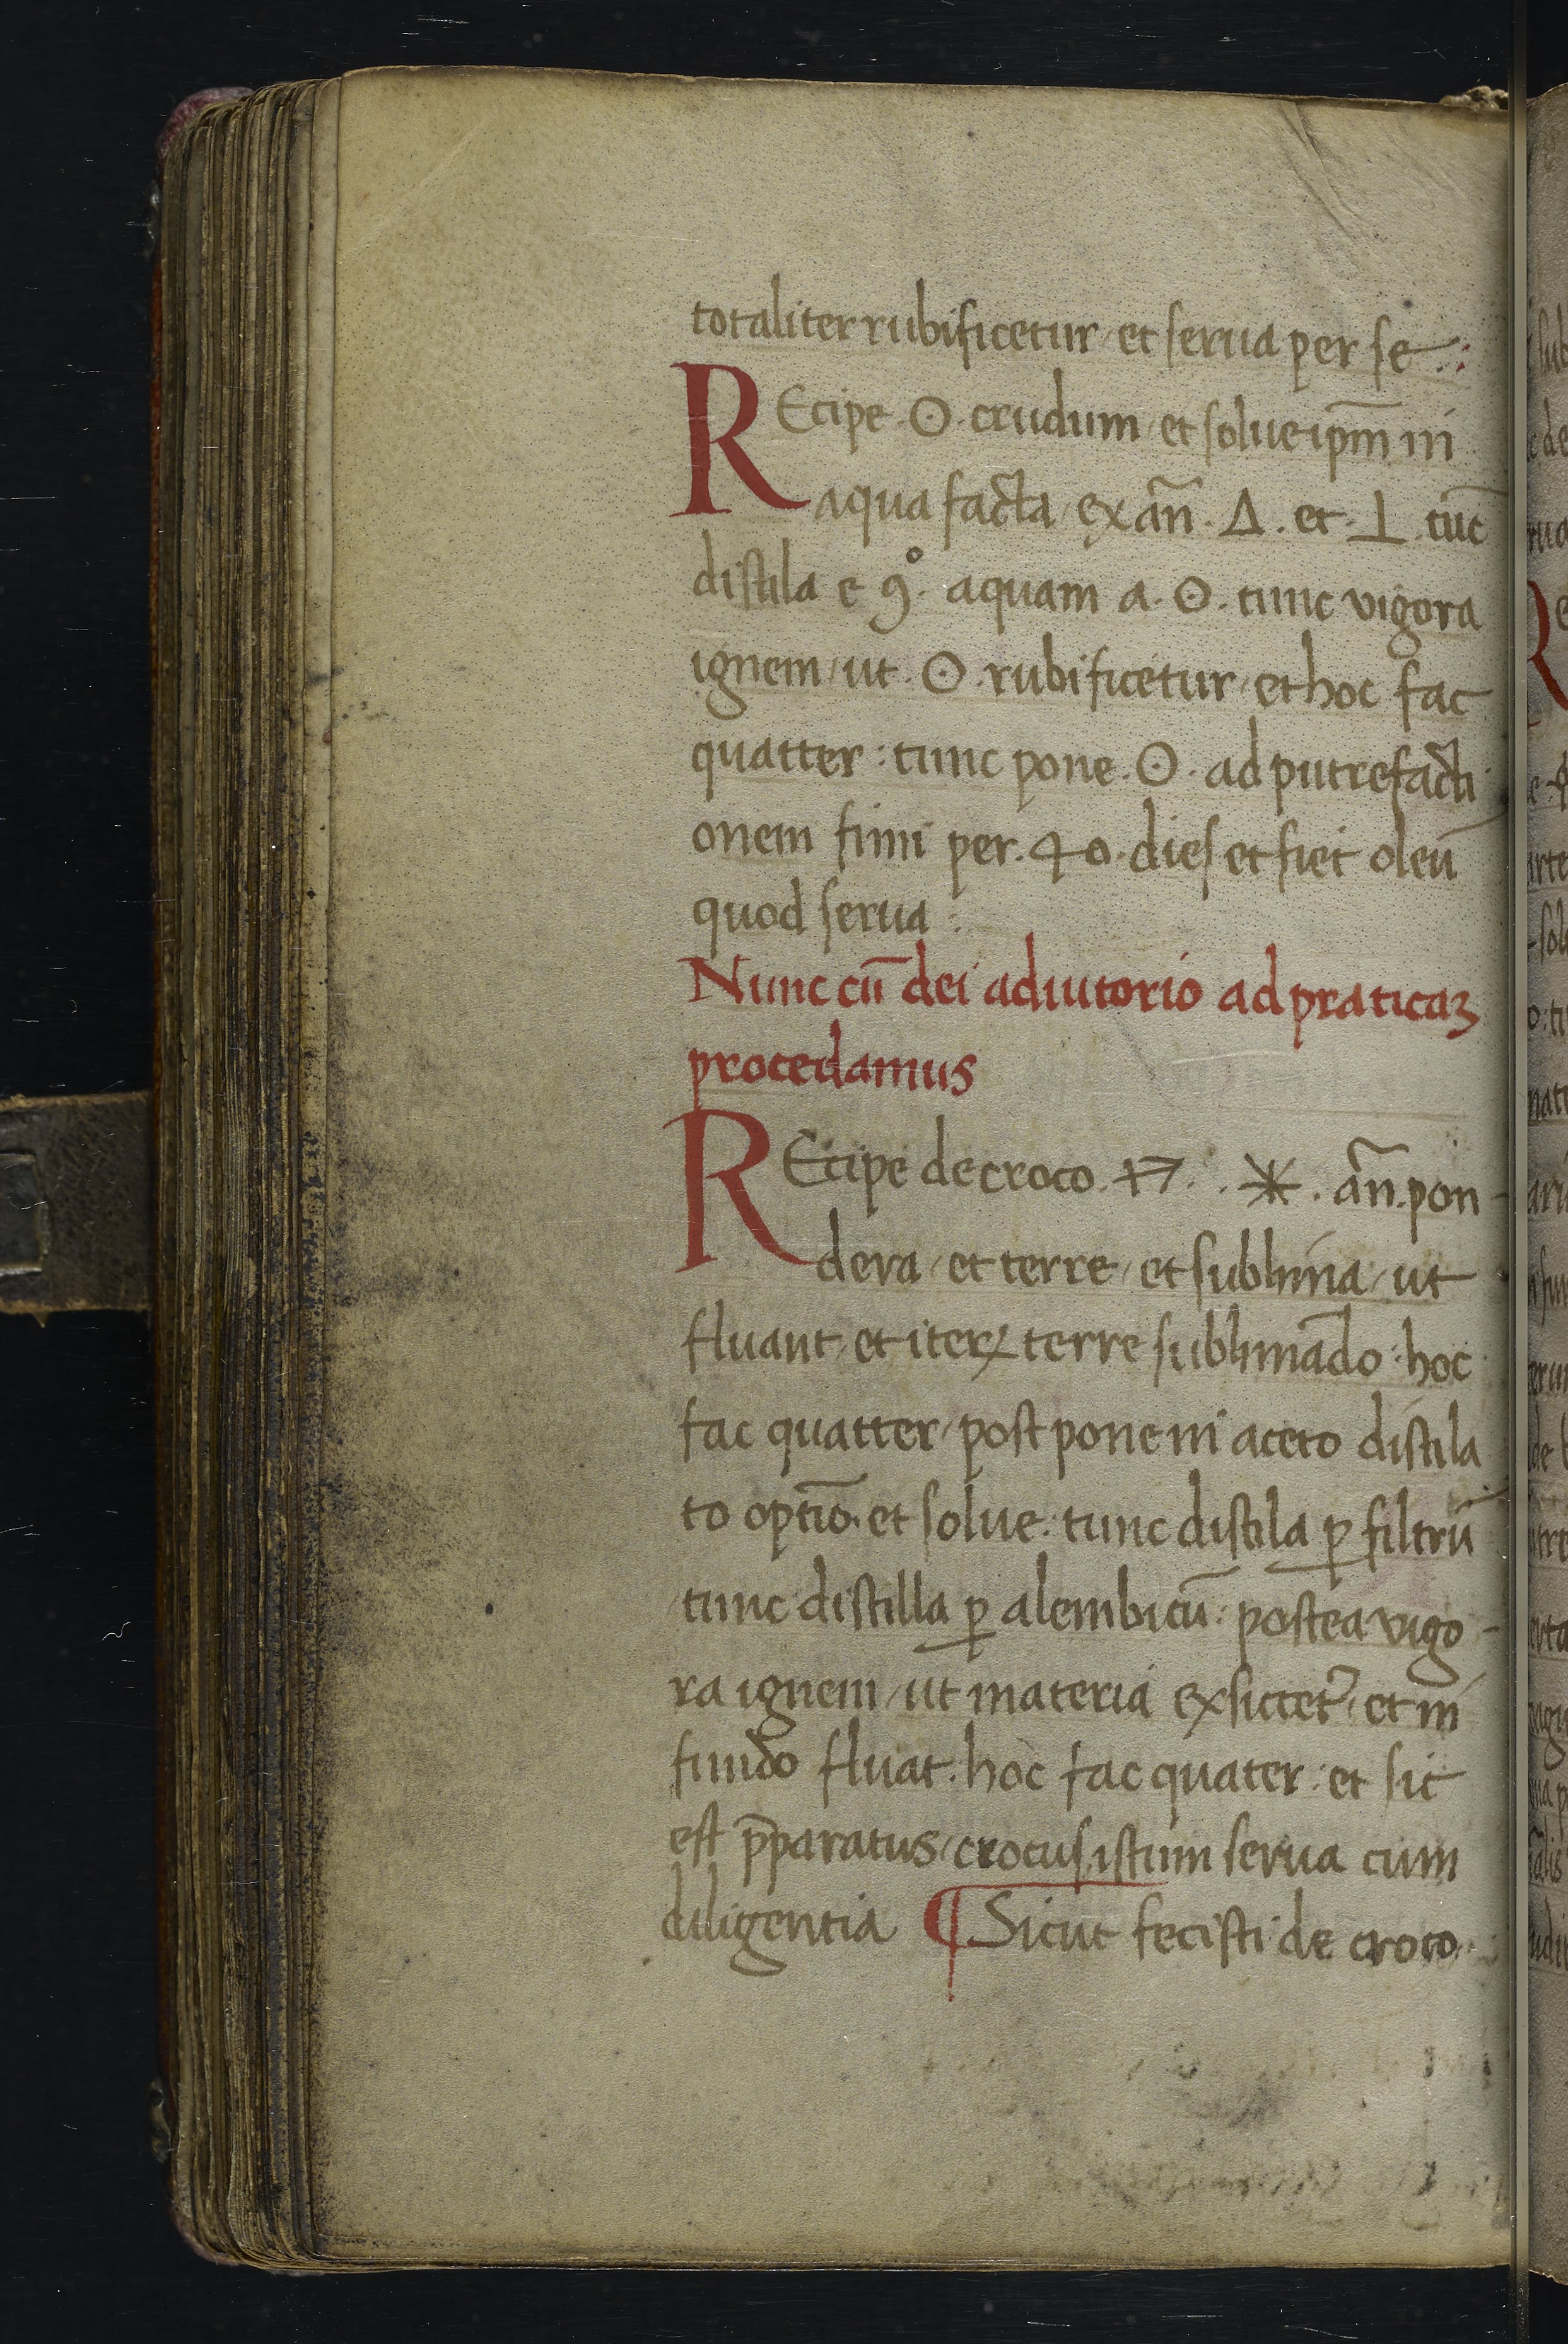 totaliter rubificetur / et serua per se :
REcipe . ☉ . crudum / et solue ipm̄ in
aqua facta / ex an̄ . Δ . et . ⊥ . tūc
distila e 9° . aquam a . ☉ . tunc vigora
ignem / ut . ☉ . rubificetur / et hoc fac
quatter : tunc pone . ☉ . ad putrefacti
onem fimi per . 40 . dies et fiet oleū
quod serua :
Nunc cū dei adiutorio ad praticaꝫ
procedamus
REcipe de croco . . . an̄ . pon-
dera / et terre / et sublima / ut
fluant / et iteꝝ terre sublimādo : hoc
fac quatter / post pone in aceto distila
to optīo . et solue : tunc distila ꝑ filtrū
tunc distilla ꝑ alembicū : postea vigo-
ra ignem / ut materia exsiccet᷑ / et in
fundo fluat . hoc fac quater : et sic
est p̄paratus / crocus , istum serua cum
diligentia ¶ Sicut fecisti de croco